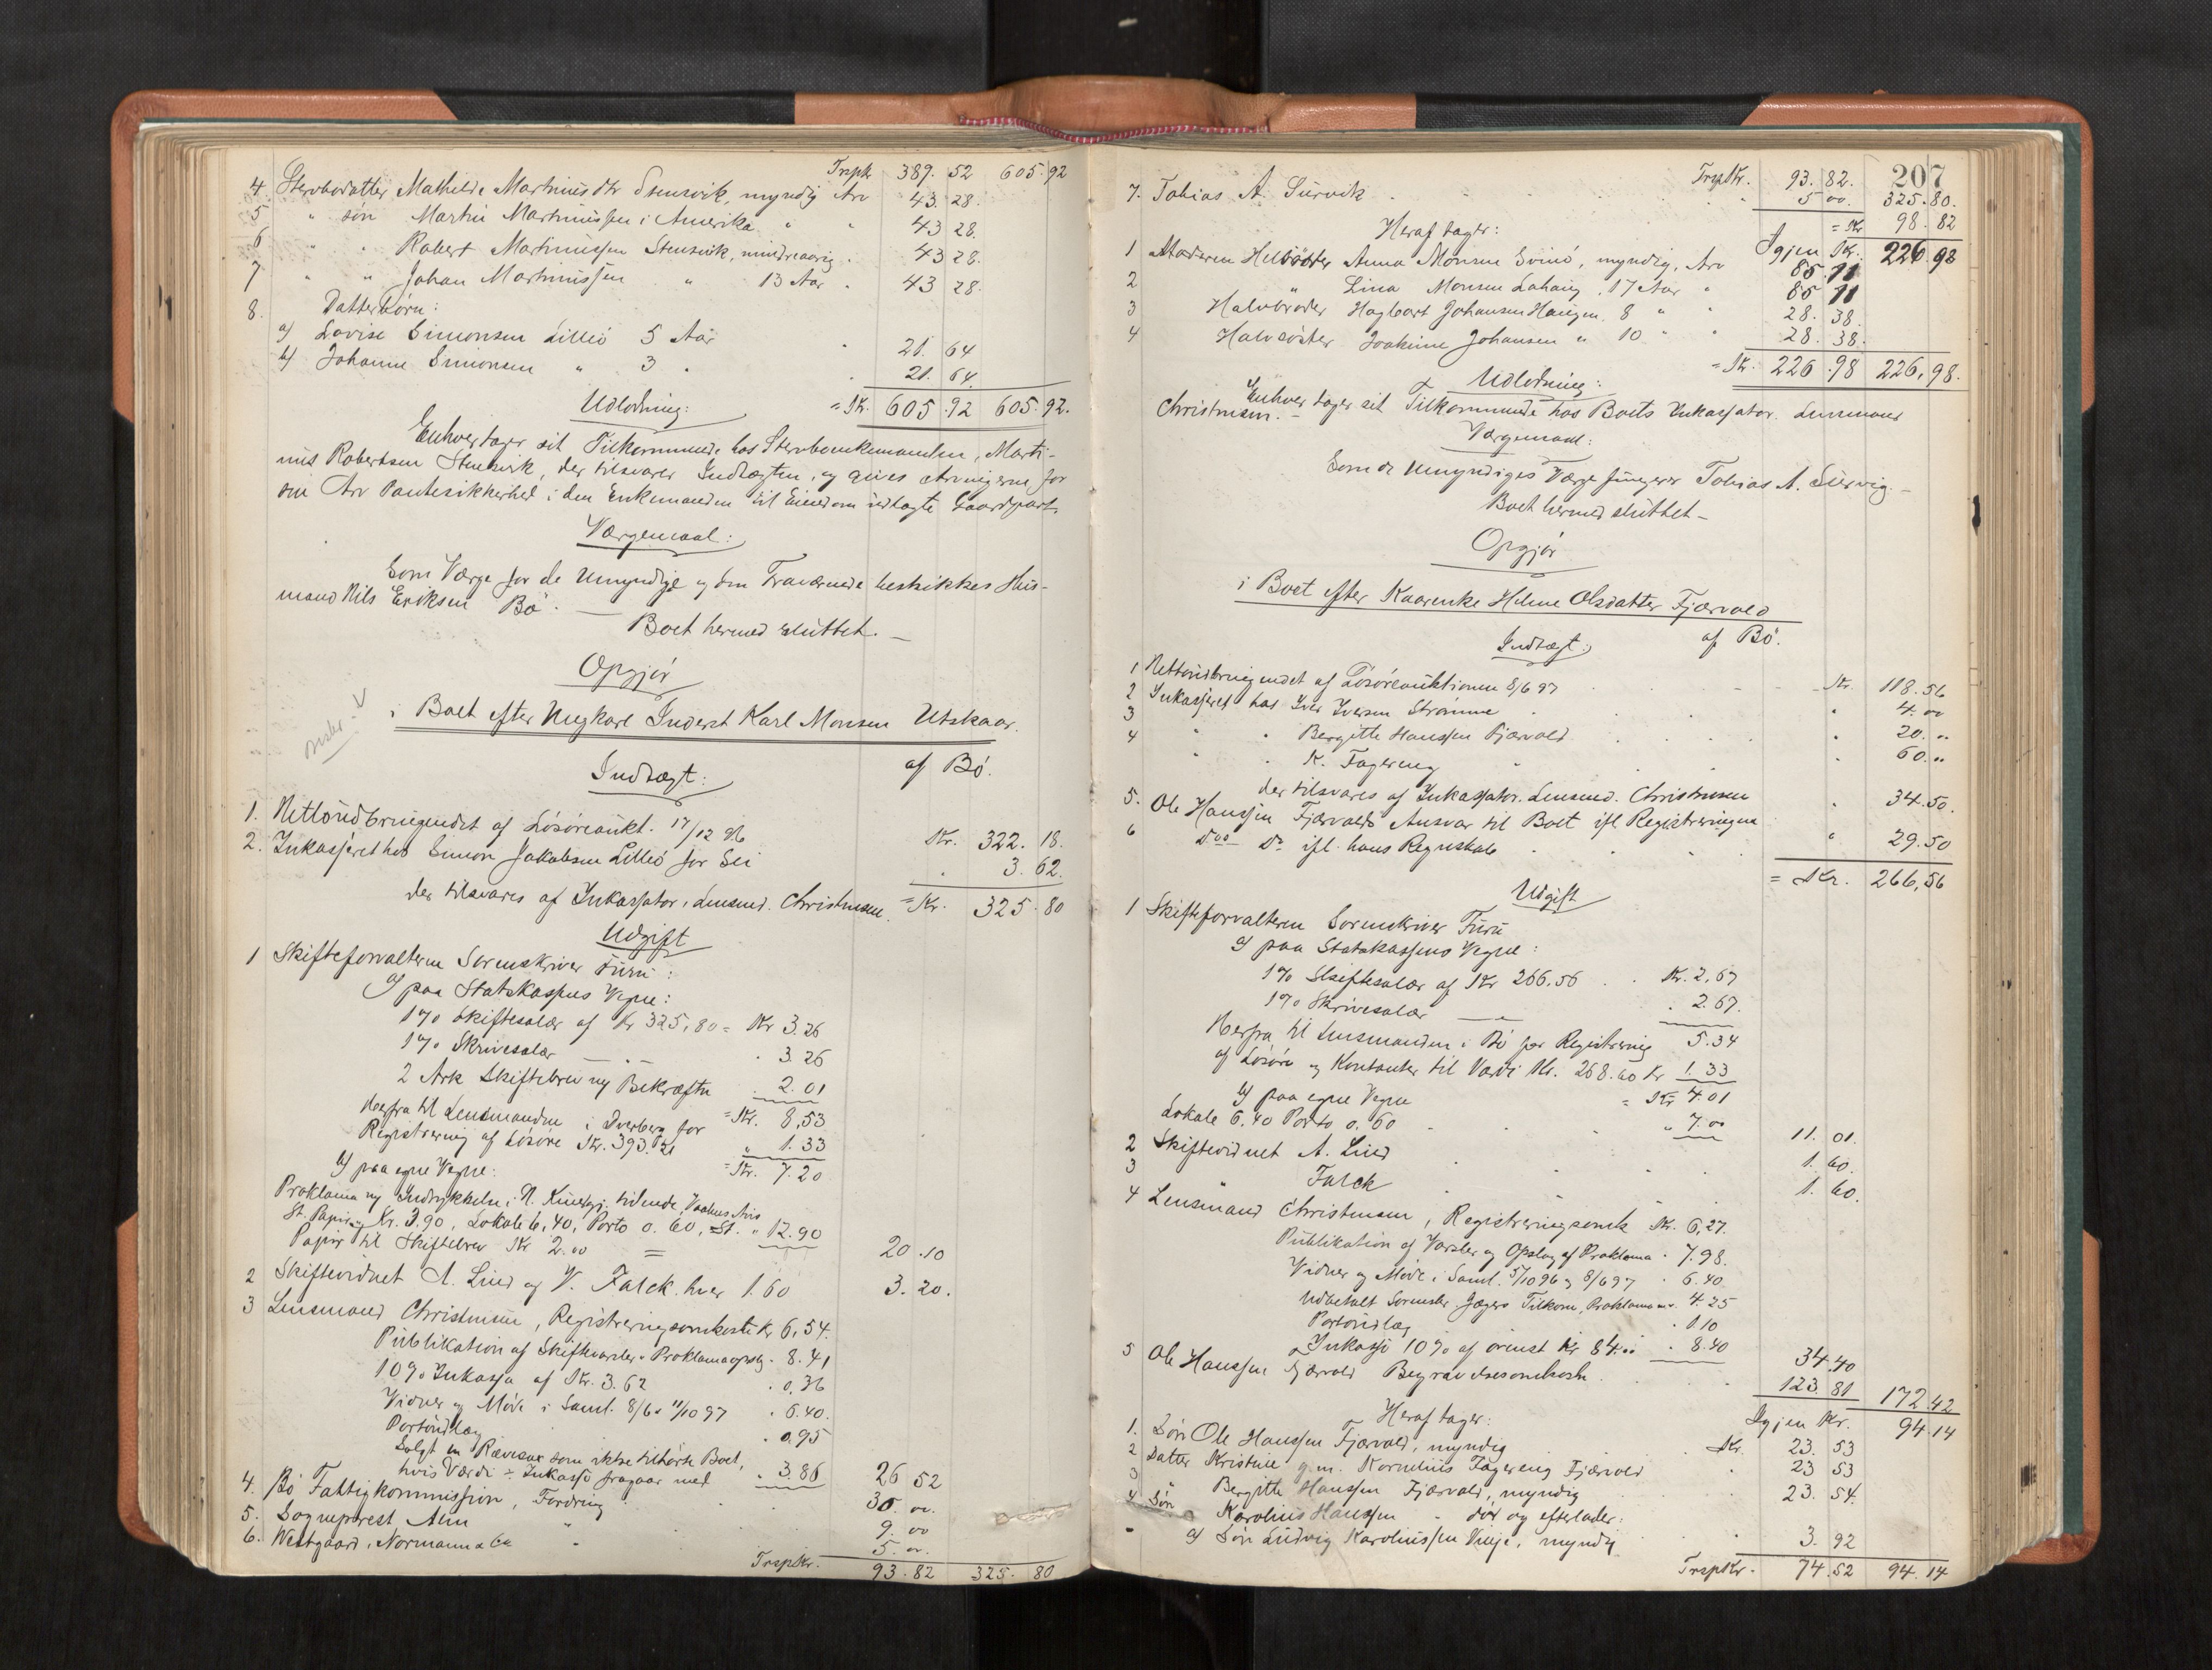 Trspk. 389.52 605.92
4. Stervbodatter Mathilde Martinusdtr Stensvik, myndig Arv 43.28.
5 " søn Martin Martinussen i Amerika " " 43 28.
6 " " Robert Martinussen Stensvik, mindreaarig . 43 28.
7 " " Johan Martinussen " 13 Aar . 43 28.
8. Datterbørn:
a) Lovise Simonsen Lilleö 5 Aar . 21. 64
b) Johanne Simonsen " 3 " . 21. 64.
= Kr. 605.92 605.92.
Udlodning:
Enhver tager sit Tilkommende hos Stervboenkemanden, Marti-
nus Robertsen Stensvik, der tilsvarer Indtægten, og gives Arvingerne for
sin Arv Pantesikkerhed i den Enkemanden til Eiendom udlagte Gaardpart.
Værgemaal:
Som Værge for de Umyndige og den Fraværende beskikkes Hus-
mand Nils Eriksen Bö. —
Boet hermed sluttet. —
Opgjör
i Boet efter Ungkarl Inderst Karl Monsen Utskaar.
af Bö.
Indtægt:
1. Nettoudbringendet af Lösöreaukt. 17/12 96 Kr. 322. 18.
2. Inkasseret hos Simon Jakobsen Lilleö for Sei . 3. 62.
der tilsvares af Inkassator, Lensmd. Christensen = Kr. 325.80
Udgift
1 Skifteforvalteren Sorenskriver Furu:
a) paa Statskassens Vegne:
1% Skiftesalær af Kr 325,80 = Kr 3.26
1% Skrivesalær — " — . 3.26
2 Ark Skiftebrev og Bekræftn . 2.01
= Kr. 8,53
Herfra til Lensmanden i Dverberg for
Registrering af Lösöre Kr. 393.21 " 1.33
= Kr. 7.20
b) paa egne Vegne:
Proklama og Indrykkelse i N. Kundgj. tidende, Vaagens Avis
Kr. 3.90, Lokale 6,40, Porto 0.60, St. " 12.90
Papir til Skiftebrev Kr 2.00 = 20.10
2 Skiftevidnet A. Lind og V. Falck hver 1.60 3.20.
3 Lensmand Christensen, Registreringsomkostn. Kr 6,54.
Publikation af Skiftevarsler & Proklamaopslg. 8.41
10% Inkasso af Kr. 3.62 . 0,36
Vidner og Møde i Saml. 8/6 & 11/10 97 . 6.40.
Portoudlæg . 0.95
Solgt en Rævesax som ikke tilhörte Boet,
hvis Værdi ÷ Inkasso fragaar med . 3.86 26 52
4. Bö Fattigkommission, Fordring 30 00.
5. Sogneprest Alm " 9.00
6. Westgaard, Normann & Co " 5.00.
TrspKr. 93.82 325.80
207
TrspKr. 93.82. 325.80.
7. Tobias A. Survik 5 00.
= Kr 98.82
Heraf tager: Igjen Kr. 226.98
1 Moderen Helsöster Anna Monsen Svinö, myndig, Arv 85.11
2 " Lina Monsen Lahaug, 17 Aar " 85 11
3 Halvbroder Hagbart Johansen Haugen 8 " " 28. 38.
4 Halvsöster Joakime Johansen " 10 " " 28. 38.
= Kr. 226.98 226,98.
Udlodning:
Enhver tager sit Tilkommende hos Boets Inkassator. Lensmand
Christensen. —
Værgemaal:
Som de Umyndiges Værge fungerer Tobias A. Survig. —
Boet hermed sluttet —
Opgjör
i Boet efter Kaarenke Helene Olsdatter Fjærvold
af Bö.
Indtægt:
1 Nettoudbringendet af Lösöreauktionen 8/6 97 Kr. 118.56
2 Inkasseret hos Iver Iversen Strömme " 4.00
3 " " Bergitte Hanssen Fjærvold " 20. "
4 " " K. Fagereng " 60. "
der tilsvares af Inkassator. Lensmd. Christensen
5. Ole Hanssen Fjærvolds Ansvar til Boet ifl Registreringen " 34.50.
6 Do Do ifl. hans Regnskab " 29.50
= Kr. 266,56
Udgift
1 Skifteforvalteren Sorenskriver Furu
a) paa Statskassens Vegne:
1% Skiftesalær af Kr 266,56 . Kr. 2,67
1% Skrivesalær — " — . 2.67.
5.34
Herfra til Lensmanden i Bö for Registrering
af Lösöre og Kontanter til Værdi Kr. 268.60 Kr 1.33
= Kr 4.01
b) paa egne Vegne
Lokale 6.40 Porto 0.60 " 7.00 11. 01.
2 Skiftevidnet A. Lind 1. 60.
3 " Falck 1. 60.
4 Lensmand Christensen, Registreringsomk Kr. 6,27.
Publikation af Varsler og Opslag af Proklama . 7.98.
Vidner og Møde i Saml. 5/10 96 & 8/6 97 . 6.40
Udbetalt Sorenskr. Jægers Tilkom, Proklama m.v. 4.25
Portoudlæg . 1 10
Inkasso 10% af örenst Kr 84.00 . 8.40 34.40
5 Ole Hanssen Fjærvold Begravelsesomkostn. 123.81 172.42
Heraf tager: Igjen Kr. 94.14
1. Sön Ole Hanssen Fjærvold, myndig Kr. 23. 53
2 Datter Kristine g.m. Kornelius Fagereng Fjærvold 23 53
3 " Bergitte Hanssen Fjærvold, myndig 23. 54.
4 Sön Karolius Hanssen " död og efterlader:
a) Sön Ludvig Karoliussen Vinje, myndig 3. 92
TrspKr. 74.52 94.14